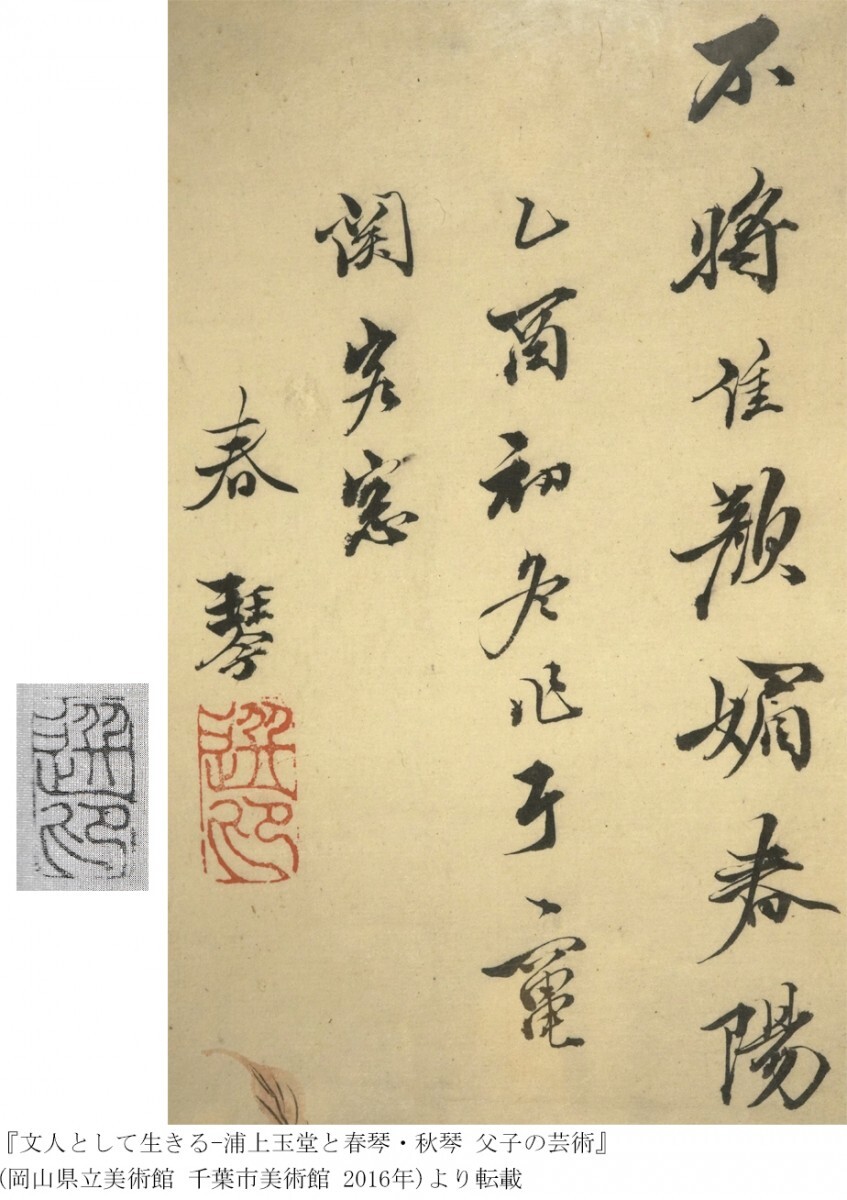 不将佳顔媚春陽
乙酉初冬作于竈
関客窓
春琴
選印
選印
『文人として生きる-浦上玉堂と春琴・秋琴 父子の芸術』
(岡山県立美術館 千葉市美術館 2016年)より転載